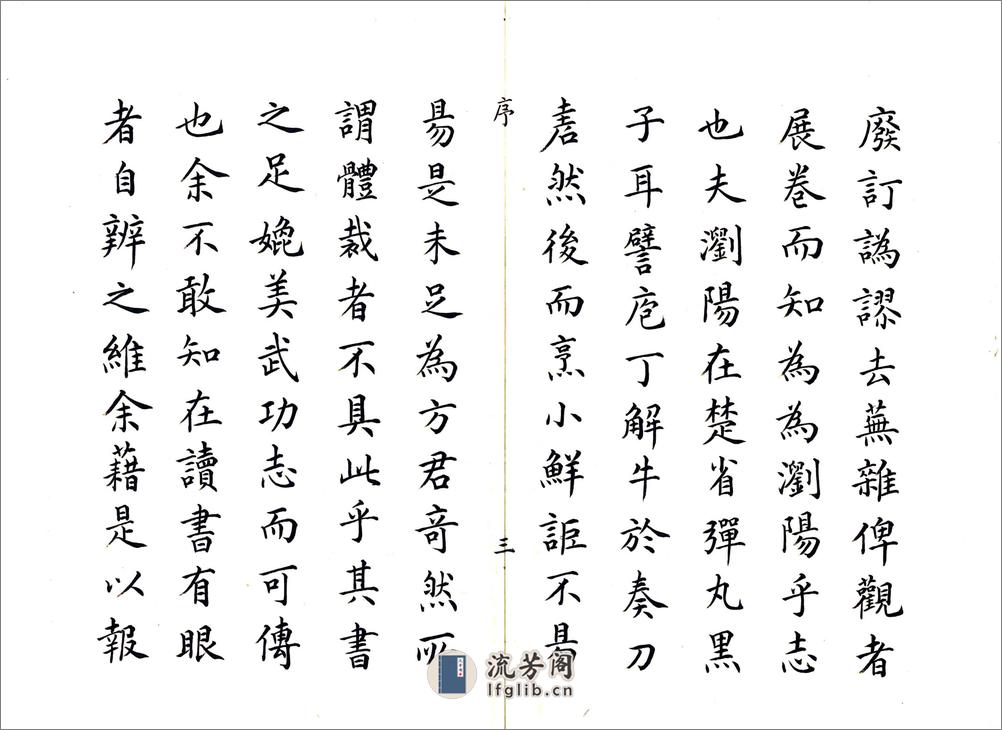 廢訂譌謬去蕪雜俾觀者
展卷而知為為瀏陽乎志
也夫瀏陽在楚省彈丸黑
子耳譬庖丁解牛於奏刀
砉然後而烹小鮮詎不易
序
三
易是未足為方君奇然所
謂體裁者不具此乎其書
之足媲美武功志而可傳
也余不敢知在讀書有眼
者自辨之維余藉是以報
流芳阁
lfglib.cn